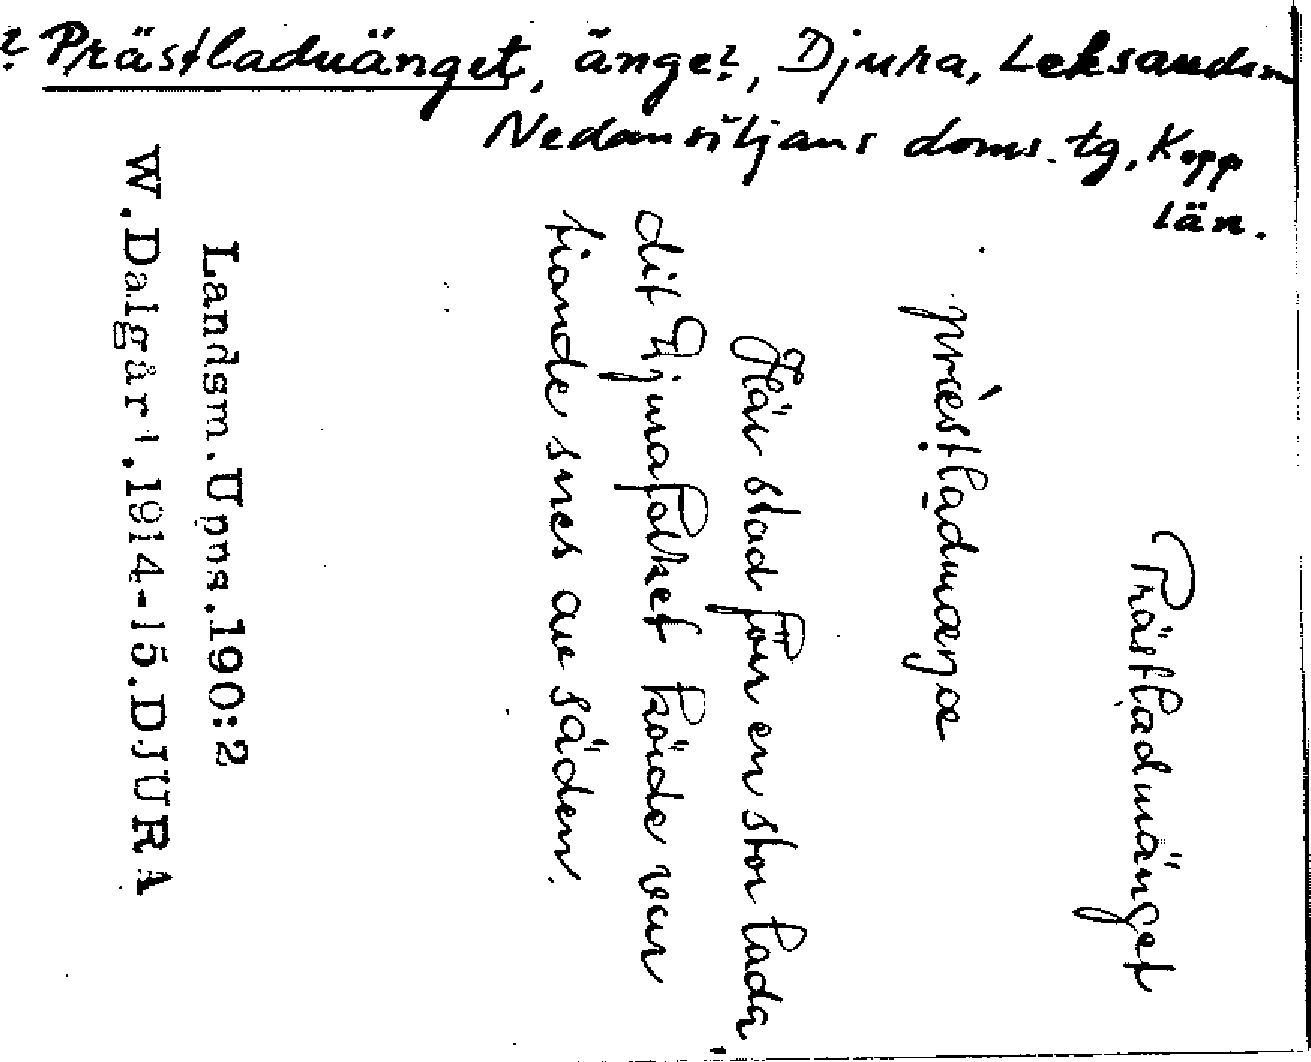 ? Prästladuänget, änge?, Djura, Leksands
Nedansiljans doms. tg, Kopp
län.
Prästladuänget
Här stod förr en stor lada
dit Djurafolket körde var
tionde snes av säden.
Landsm. Upps. 190:2
W. Dalgärt. 1914-15. DJURA